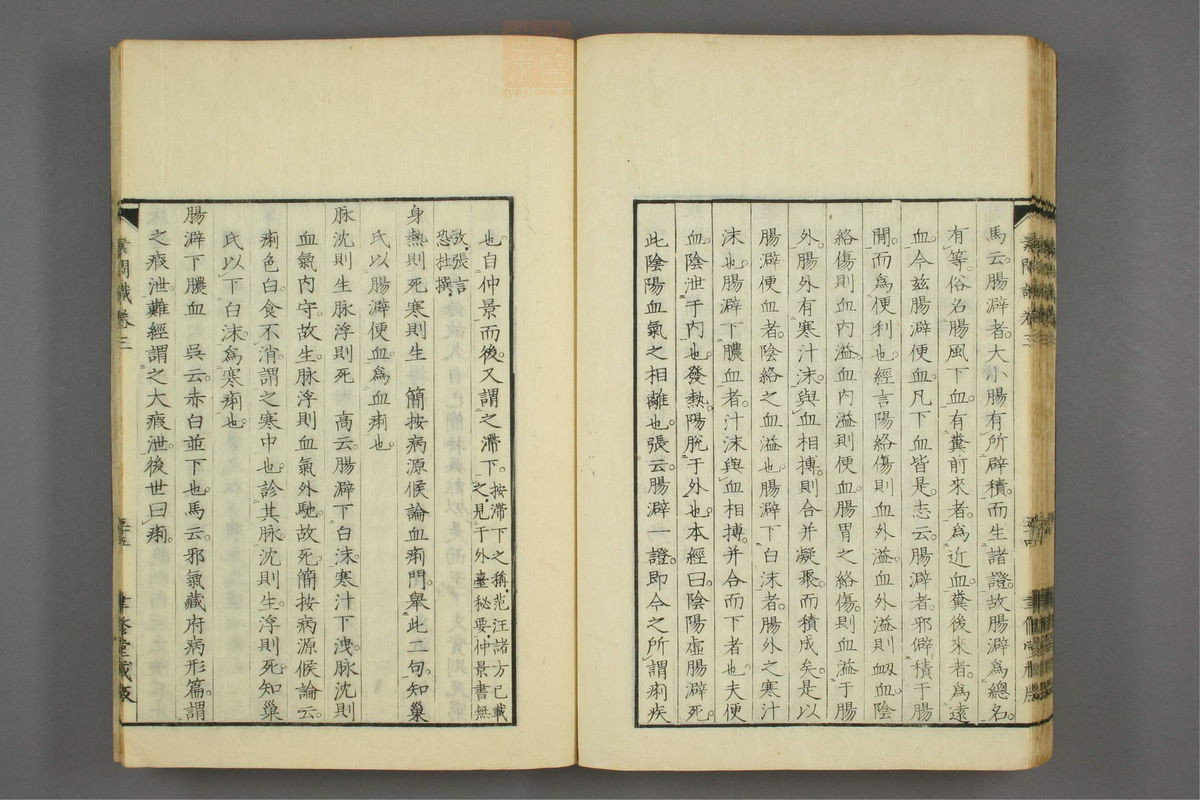 馬云腸澼者大小腸有所辟積而生諸證故腸澼爲總名
有等俗名腸風下血有糞前來者爲近血糞後來者爲遠
血今玆腸澼便血凡下血皆是志云腸澼者邪僻積于腸
閒而爲便利也經言陽絡傷則血外溢血外溢則衂血陰
絡傷則血內溢血內溢則便血腸胃之絡傷則血溢于腸
外腸外有寒汁沫與血相搏則合幷凝聚而積成矣是以
腸澼便血者陰絡之血溢也腸澼下白沫者腸外之寒汁
沫也腸澼下膿血者汁沫與血相搏幷合而下者也夫便
血陰泄于內也發熱陽脫于外也本經曰陰陽虛腸澼死
此陰陽血氣之相離也張云腸澼一證卽今之所謂痢疾
也自仲景而後又謂之滯下按滯下之稱范汪諸方已載
之見于外臺秘要仲景書無
攷張言
恐杜撰
身熱則死寒則生　簡按病源候論血痢門擧此二句知巢
氏以腸澼便血爲血痢也
脉沈則生脉浮則死　高云腸澼下白沫寒汁下洩脉沈則
血氣內守故生脉浮則血氣外馳故死簡按病源候論云
痢色白食不消謂之寒中也診其脉沈則生浮則死知巢
氏以下白沫爲寒痢也
腸澼下膿血　吳云赤白並下也馬云邪氣藏府病形篇謂
之瘕泄難經謂之大瘕泄後世曰痢
素問識卷三